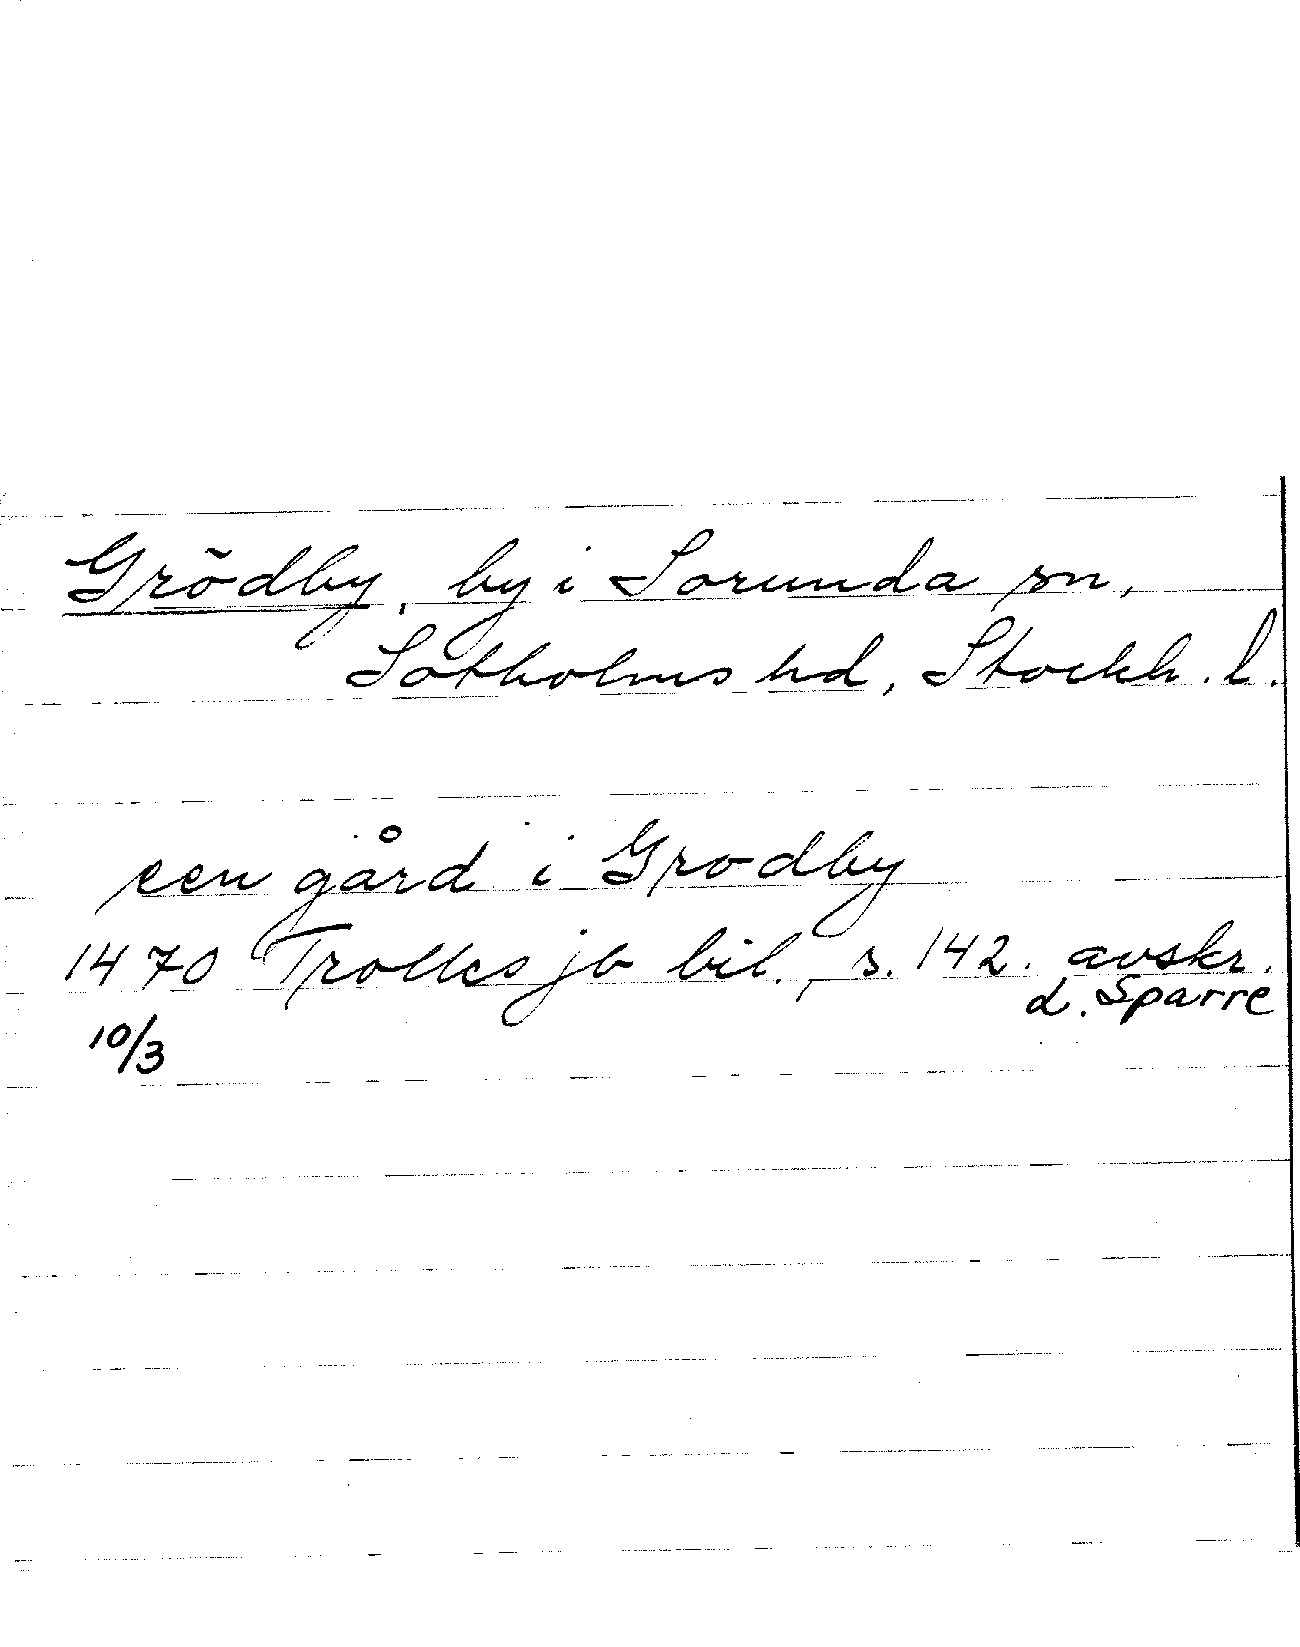 Grödby, by i Sorunda sn,
Sotholms hd, Stockh. l.
een gård i Grodby
1470 Trolles jb bil., s. 142. avskr.
d. Sparre
10/3